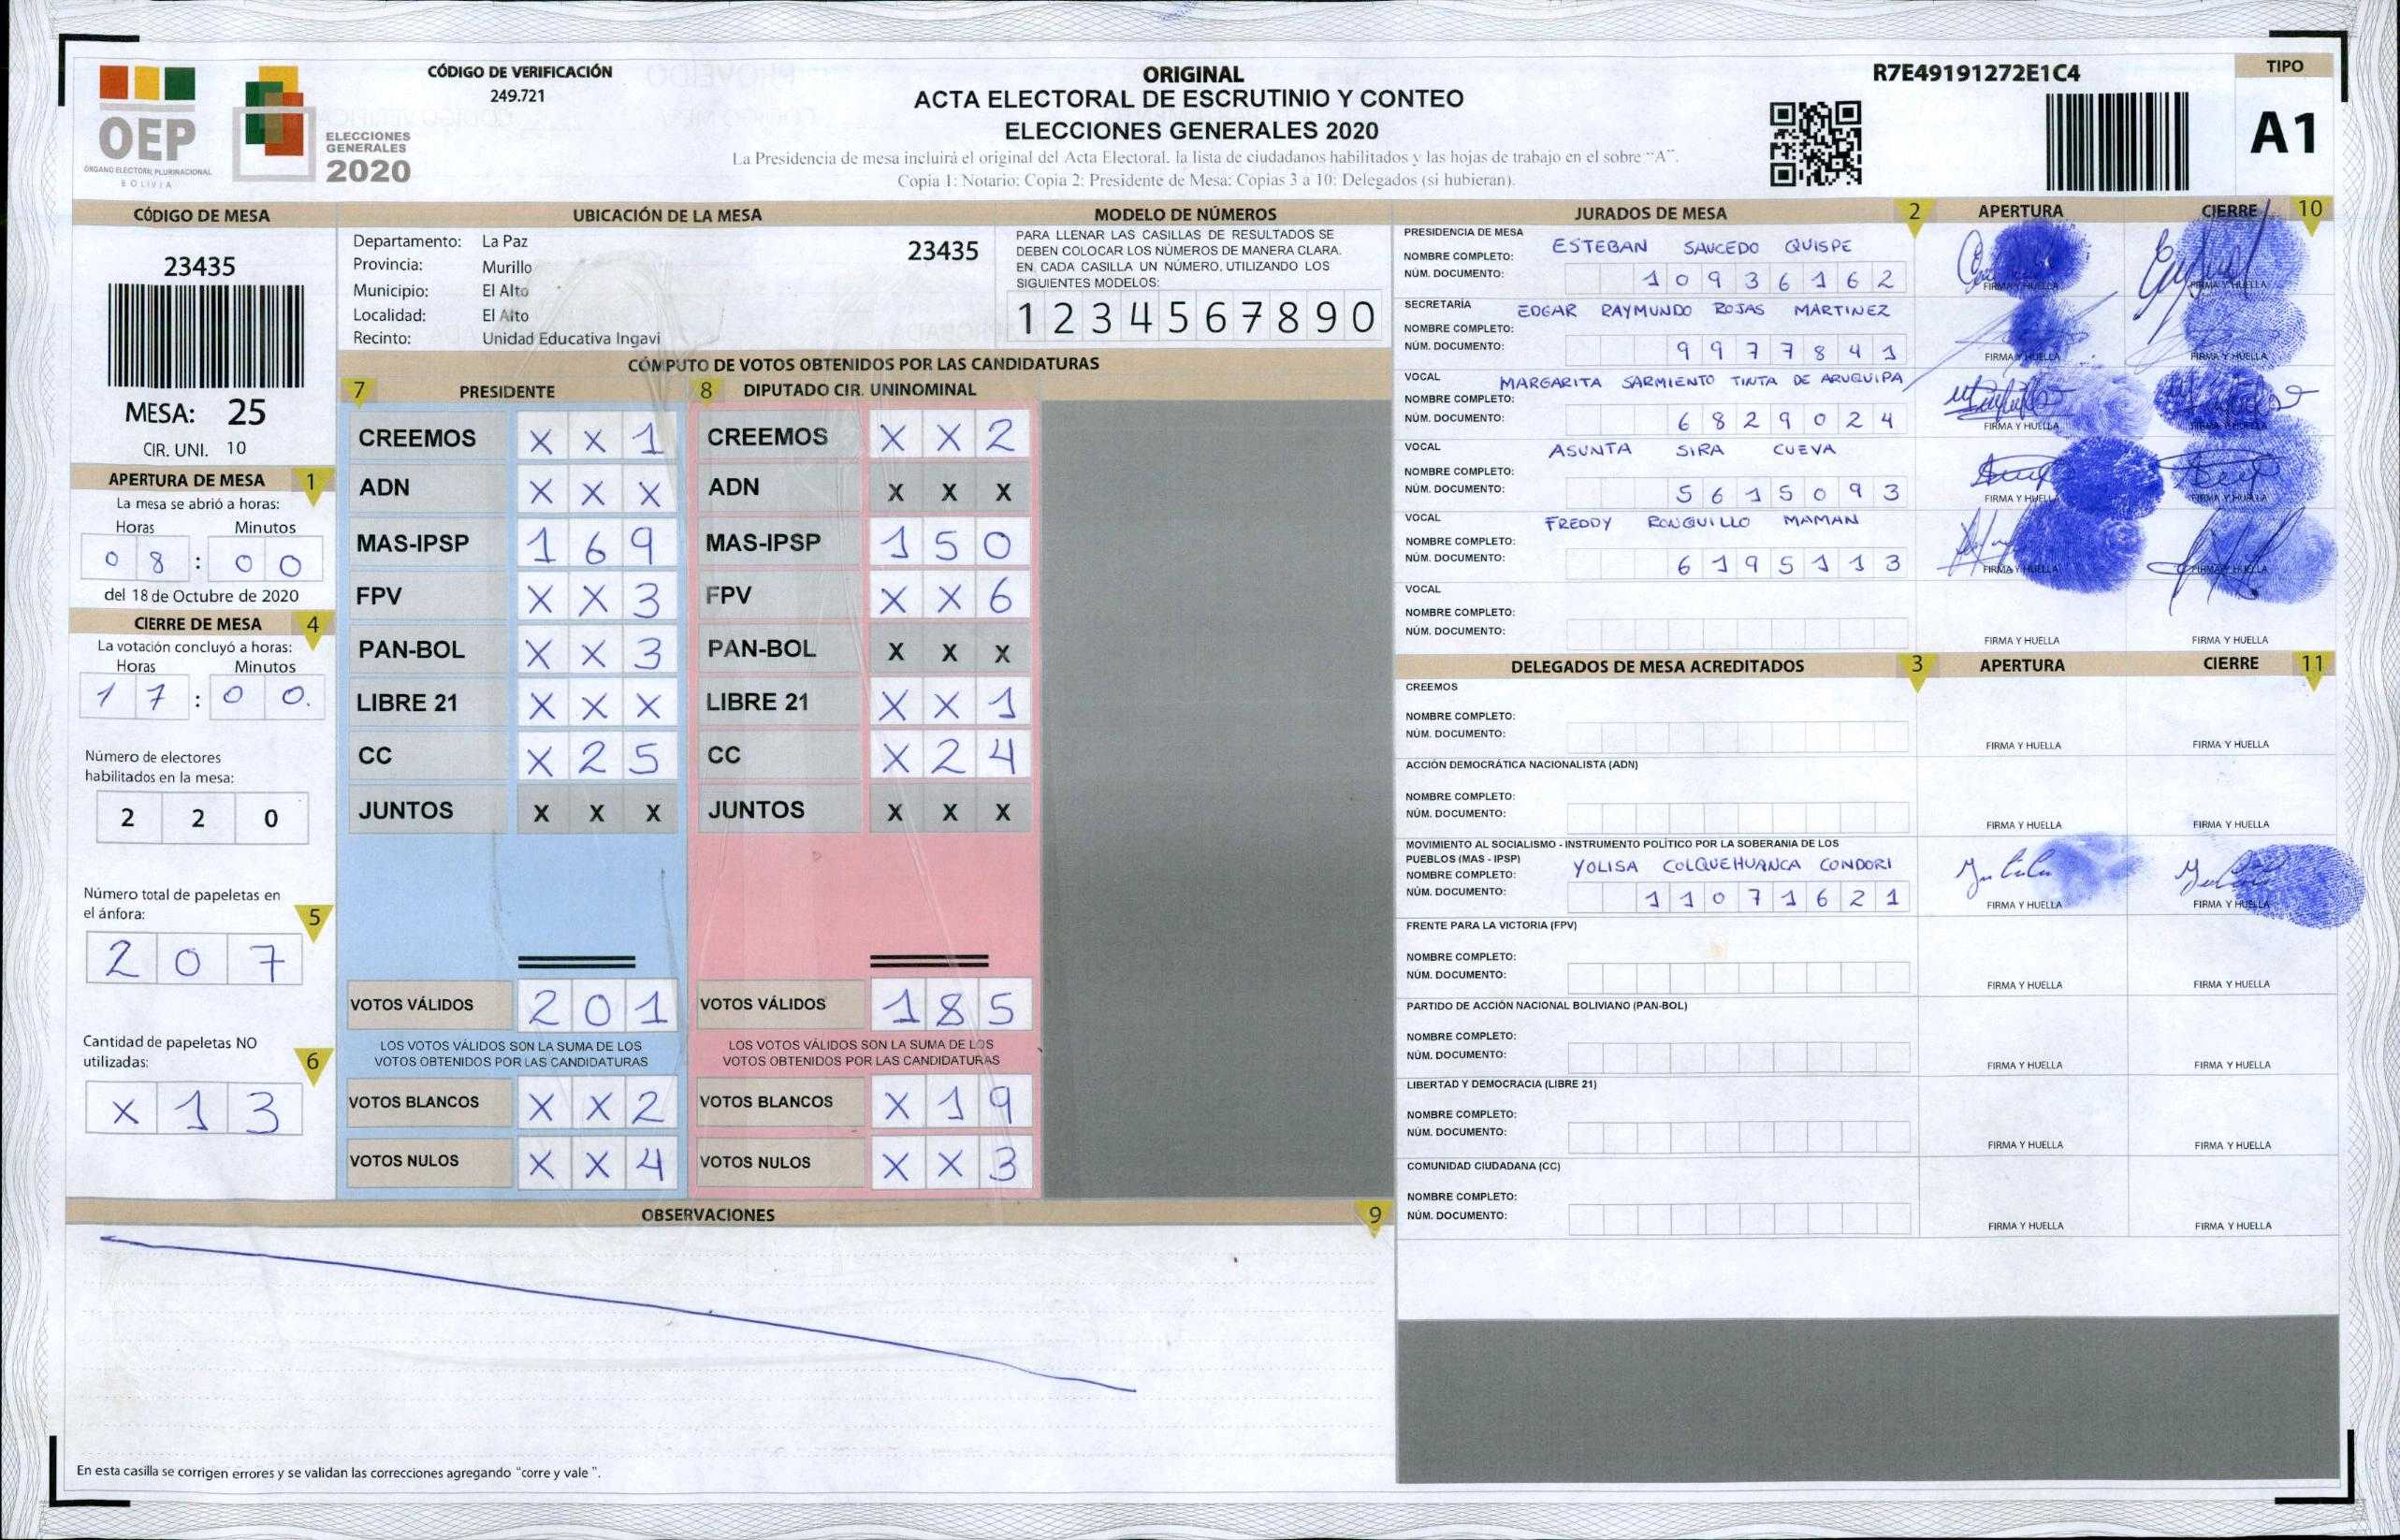 OEP
ÓRGANO ELECTORAL PLURINACIONAL
BOLIVIA
ELECCIONES
GENERALES
2020
CÓDIGO DE VERIFICACIÓN
249.721
ORIGINAL
ACTA ELECTORAL DE ESCRUTINIO Y CONTEO
ELECCIONES GENERALES 2020
La Presidencia de mesa incluirá el original del Acta Electoral, la lista de ciudadanos habilitados y las hojas de trabajo en el sobre "A".
Copia 1: Notario; Copia 2: Presidente de Mesa; Copias 3 a 10: Delegados (si hubieran).
R7E49191272E1C4
TIPO
A1
CÓDIGO DE MESA
23435
MESA: 25
CIR. UNI. 10
APERTURA DE MESA 1
La mesa se abrió a horas:
Horas Minutos
0 8 : 0 0
del 18 de Octubre de 2020
CIERRE DE MESA 4
La votación concluyó a horas:
Horas Minutos
1 7 : 0 0.
Número de electores
habilitados en la mesa:
2 2 0
Número total de papeletas en
el ánfora: 5
2 0 7
Cantidad de papeletas NO
utilizadas: 6
X 1 3
UBICACIÓN DE LA MESA
Departamento: La Paz
Provincia: Murillo
Municipio: El Alto
Localidad: El Alto
Recinto: Unidad Educativa Ingavi
23435
MODELO DE NÚMEROS
PARA LLENAR LAS CASILLAS DE RESULTADOS SE
DEBEN COLOCAR LOS NÚMEROS DE MANERA CLARA.
EN CADA CASILLA UN NÚMERO, UTILIZANDO LOS
SIGUIENTES MODELOS:
1 2 3 4 5 6 7 8 9 0
CÓMPUTO DE VOTOS OBTENIDOS POR LAS CANDIDATURAS
7 PRESIDENTE
CREEMOS X X 1
ADN X X X
MAS-IPSP 1 6 9
FPV X X 3
PAN-BOL X X 3
LIBRE 21 X X X
CC X 2 5
JUNTOS X X X
VOTOS VÁLIDOS 2 0 1
LOS VOTOS VÁLIDOS SON LA SUMA DE LOS
VOTOS OBTENIDOS POR LAS CANDIDATURAS
VOTOS BLANCOS X X 2
VOTOS NULOS X X 4
8 DIPUTADO CIR. UNINOMINAL
CREEMOS X X 2
ADN X X X
MAS-IPSP 1 5 0
FPV X X 6
PAN-BOL X X X
LIBRE 21 X X 1
CC X 2 4
JUNTOS X X X
VOTOS VÁLIDOS 1 8 5
LOS VOTOS VÁLIDOS SON LA SUMA DE LOS
VOTOS OBTENIDOS POR LAS CANDIDATURAS
VOTOS BLANCOS X 1 9
VOTOS NULOS X X 3
OBSERVACIONES 9
En esta casilla se corrigen errores y se validan las correcciones agregando "corre y vale".
JURADOS DE MESA 2 APERTURA CIERRE 10
PRESIDENCIA DE MESA
NOMBRE COMPLETO: ESTEBAN SAUCEDO QUISPE
NÚM. DOCUMENTO: 1 0 9 3 6 1 6 2
FIRMA Y HUELLA FIRMA Y HUELLA
SECRETARÍA
NOMBRE COMPLETO: EDGAR RAYMUNDO ROJAS MARTINEZ
NÚM. DOCUMENTO: 9 9 7 7 8 4 1
FIRMA Y HUELLA FIRMA Y HUELLA
VOCAL
NOMBRE COMPLETO: MARGARITA SARMIENTO TINTA DE ARUQUIPA
NÚM. DOCUMENTO: 6 8 2 9 0 2 4
FIRMA Y HUELLA FIRMA Y HUELLA
VOCAL
NOMBRE COMPLETO: ASUNTA SIRA CUEVA
NÚM. DOCUMENTO: 5 6 1 5 0 9 3
FIRMA Y HUELLA FIRMA Y HUELLA
VOCAL
NOMBRE COMPLETO: FREDDY RONQUILLO MAMAN
NÚM. DOCUMENTO: 6 1 9 5 1 1 3
FIRMA Y HUELLA FIRMA Y HUELLA
VOCAL
NOMBRE COMPLETO:
NÚM. DOCUMENTO:
FIRMA Y HUELLA FIRMA Y HUELLA
DELEGADOS DE MESA ACREDITADOS 3 APERTURA CIERRE 11
CREEMOS
NOMBRE COMPLETO:
NÚM. DOCUMENTO:
FIRMA Y HUELLA FIRMA Y HUELLA
ACCIÓN DEMOCRÁTICA NACIONALISTA (ADN)
NOMBRE COMPLETO:
NÚM. DOCUMENTO:
FIRMA Y HUELLA FIRMA Y HUELLA
MOVIMIENTO AL SOCIALISMO - INSTRUMENTO POLÍTICO POR LA SOBERANIA DE LOS
PUEBLOS (MAS - IPSP)
NOMBRE COMPLETO: YOLISA COLQUEHUANCA CONDORI
NÚM. DOCUMENTO: 1 1 0 7 1 6 2 1
FIRMA Y HUELLA FIRMA Y HUELLA
FRENTE PARA LA VICTORIA (FPV)
NOMBRE COMPLETO:
NÚM. DOCUMENTO:
FIRMA Y HUELLA FIRMA Y HUELLA
PARTIDO DE ACCIÓN NACIONAL BOLIVIANO (PAN-BOL)
NOMBRE COMPLETO:
NÚM. DOCUMENTO:
FIRMA Y HUELLA FIRMA Y HUELLA
LIBERTAD Y DEMOCRACIA (LIBRE 21)
NOMBRE COMPLETO:
NÚM. DOCUMENTO:
FIRMA Y HUELLA FIRMA Y HUELLA
COMUNIDAD CIUDADANA (CC)
NOMBRE COMPLETO:
NÚM. DOCUMENTO:
FIRMA Y HUELLA FIRMA Y HUELLA